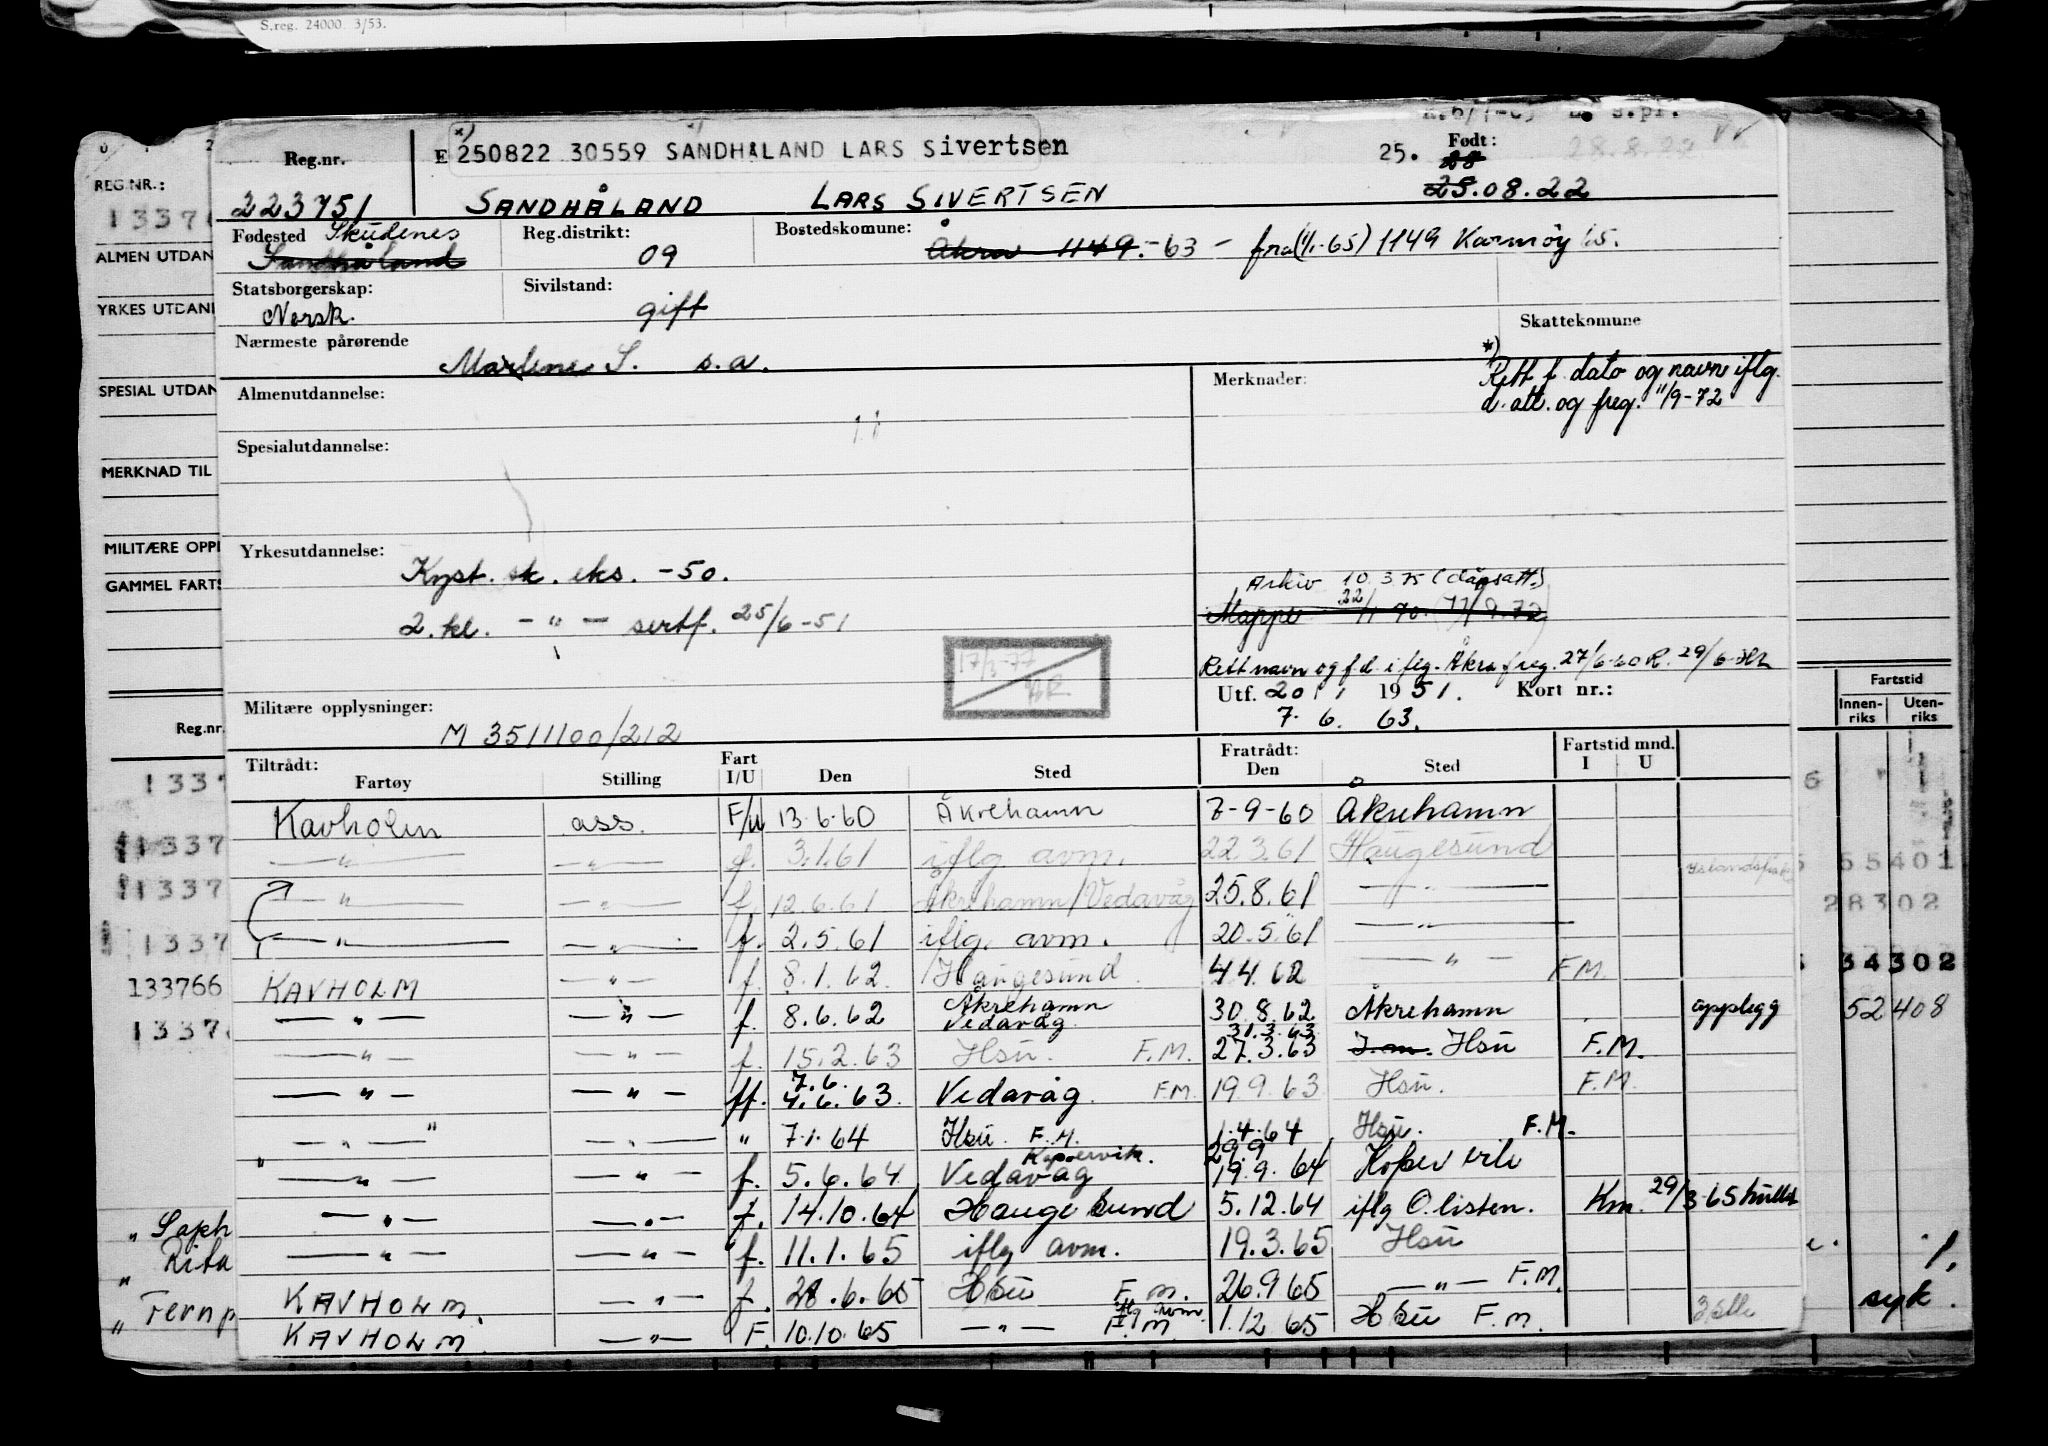 S.reg. 24000. 3/53.
REG.NR.:
ALMEN UTDAN
YRKES UTDAN
SPESIAL UTDAN
MERKNAD TIL
MILITÆRE OPPL
GAMMEL FARTS
Reg.nr.
133766
Saph
Rita
Fernp
Reg.nr.
223751
*)
E 250822 30559 SANDHÅLAND LARS Sivertsen
SANDHÅLAND LARS SIVERTSEN
Født:
25. 28
28.08.22
Fødested Skudenes
Sandhåland
Reg.distrikt:
09
Bostedskomune:
Åkra 1149.-63 - fra (1/1-65) 1149 Karmøy 65.
Statsborgerskap:
Norsk.
Sivilstand:
gift
Skattekomune
Nærmeste pårørende
Marlene S. s.a.
Almenutdannelse:
Merknader:
*)
Rett f. dato og navn iflg.
d. att. og freg. 11/9-72
Spesialutdannelse:
Yrkesutdannelse:
Kyst. sk. eks. -50.
2. kl. - " - sertf. 25/6-51
Arkiv 10.3.75 (dåpsatt.)
Mappe 22/11 70. 11/9.72
Rett navn og f.d. iflg. Åkra freg. 27/6-60 R. 29/6-
17/3-77
Utf. 20/1 1951. Kort nr.:
7. 6. 63.
Militære opplysninger:
M 3511100/212
Tiltrådt: Fartøy Stilling Fart I/U Den Sted Fratrådt: Den Sted Fartstid mnd. I U
Kavholm ass. F/U 13.6.60 Åkrehamn 7-9-60 Åkrehamn
— " — — " — f. 3.1.61 iflg avm. 22.3.61 Haugesund
— " — — " — f. 12.6.61 Åkrehamn/Vedavåg 25.8.61 — " — Islandsfiske
— " — — " — f. 2.5.61 iflg. avm. 20.5.61 — " —
KAVHOLM — " — f. 8.1.62 Haugesund 4.4.62 — " — F.M.
— " — — " — f. 8.6.62 Åkrehamn Vedavåg 30.8.62 Åkrehamn opplegg
— " — — " — f. 15.2.63 Hsu. F.M. 31.3.63 27.3.63 I.m. Hsu F.M.
— " — — " — ff. 7.6. 4.6.63. Vedavåg F.M. 19.9.63 Hsu. F.M.
— " — — " — " 7.1.64 Hsu. F.M. 1.4.64 Hsu. F.M.
— " — — " — f. 5.6.64 Kopervik. Vedavåg 29.9 19.9.64 Kopervik
— " — — " — f. 14.10.64 Haugesund 5.12.64 iflg O.listen. Km. 29/3-65
— " — — " — f. 11.1.65 iflg avm. 19.3.65 Hsu
KAVHOLM. — " — f. 28.6.65 Hsu F.m. 26.9.65 — " — F.M.
KAVHOLM. — " — F. 10.10.65 — " — iflg avm. F.M. 1.12 65 Hsu F.m.
Fartstid
Innen-riks Uten-riks
55401
28302
34302
52408
syk.